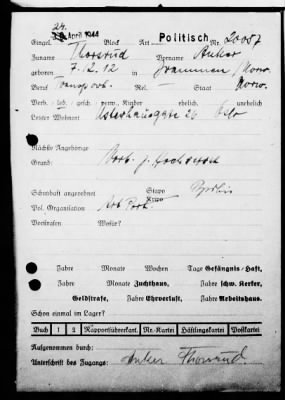 24.
April 1944 Politisch
Eingel. Block Art Nr. 20087
Zuname Thorsrud Vorname Anker
geboren 7.12.12 in Drammen / Norw.
Beruf Transportarb. Rel. Staat Norw.
Verh. led. gesch. verw. Kinder ehelich, unehelich
Letzter Wohnort 26 Oslo
Nächste Angehörige
Grund:
Schutzhaft angeordnet Stapo Kripo Berlin
Pol. Organisation
Vorstrafen Wofür?
Jahre Monate Wochen Tage Gefängnis / Haft,
Jahre Monate Zuchthaus, Jahre schw. Kerker,
Geldstrafe, Jahre Ehrverlust, Jahre Arbeitshaus.
Schon einmal im Lager?
Buch 1 2 Rapportführerkart. Nr.-Kartei Häftlingskartei Postkartei
Aufgenommen durch:
Unterschrift des Zugangs: Anker Thorsrud.